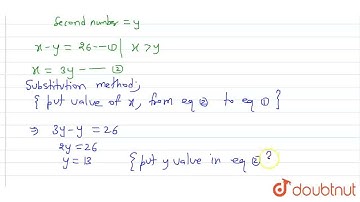 Second number = y
x - y = 26 - ① | x > y
x = 3y - — ②
Substitution method;
{ put value of x, from eq ② to eq ① }
⇒ 3y - y = 26
2y = 26
y = 13 { put y value in eq ② ?
doubtnut